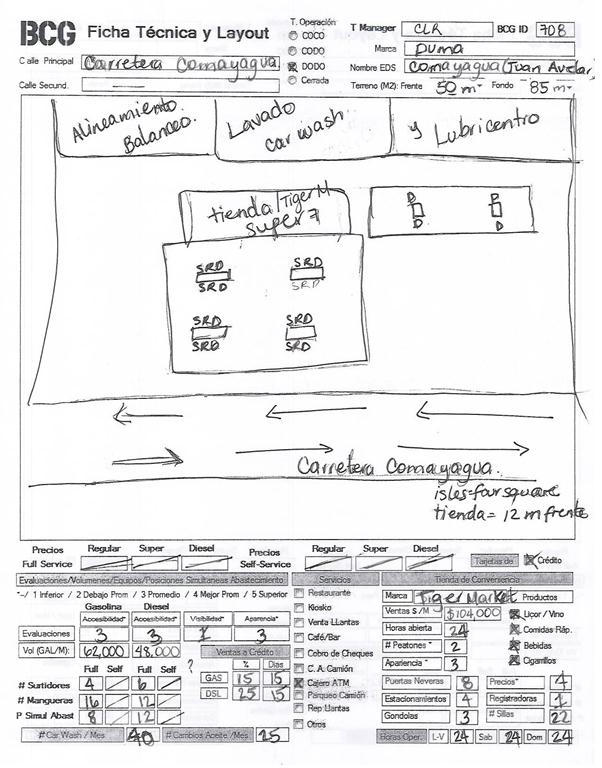 BCG Ficha Técnica y Layout
T. Operación
COCO
CODO
DODO
Cerrada
T Manager CLR BCG ID 708
Marca Puma
Calle Principal Carretera Comayagua
Nombre EDS Comayagua (Juan Avelar)
Calle Secund.
Terreno (M2): Frente 50 m- Fondo 85 m-
Alineamiento.
Balanceo.
Lavado
car wash
y Lubricentro
tienda/Tiger M
super 7
D D
D D
SRD SRD
SRD SRD
SRD SRD
SRD SRD
Carretera Comayagua.
isles-four square
tienda = 12 m frente
Precios Regular Super Diesel Precios Regular Super Diesel
Full Service Self-Service Tarjetas de Crédito
Evaluaciones/Volumenes/Equipos/Posiciones Simultaneas Abastecimiento
*-/ 1 Inferior / 2 Debajo Prom / 3 Promedio / 4 Mejor Prom / 5 Superior
Gasolina Diesel
Accesibilidad* Accesibilidad* Visibilidad* Aparencia*
Evaluaciones 3 3 3
Vol (GAL/M): 62,000 48,000
Ventas a Crédito
Full Self Full Self ? % Dias
# Surtidores 4 6 GAS 15 15
# Mangueras 16 12 DSL 25 15
P Simul Abast 8 12
# Car Wash / Mes 40 # Cambios Aceite /Mes 25
Servicios
Restaurante
Kiosko
Venta LLantas
Café/Bar
Cobro de Cheques
C. A. Camión
Cajero ATM
Parqueo Camión
Rep Llantas
Otros
Tienda de Conveniencia
Marca Tiger Market Productos
Ventas $/M $104,000 Liçor / Vino
Horas abierta 24 Comidas Ráp.
# Peatones * 2 Bebidas
Apariencia * 3 Cigarrilos
Puertas Neveras 8 Precios* 4
Estacionamientos 4 Registradoras 1
Gondolas 3 # Sillas 22
Horas Oper. L-V 24 Sab 24 Dom 24